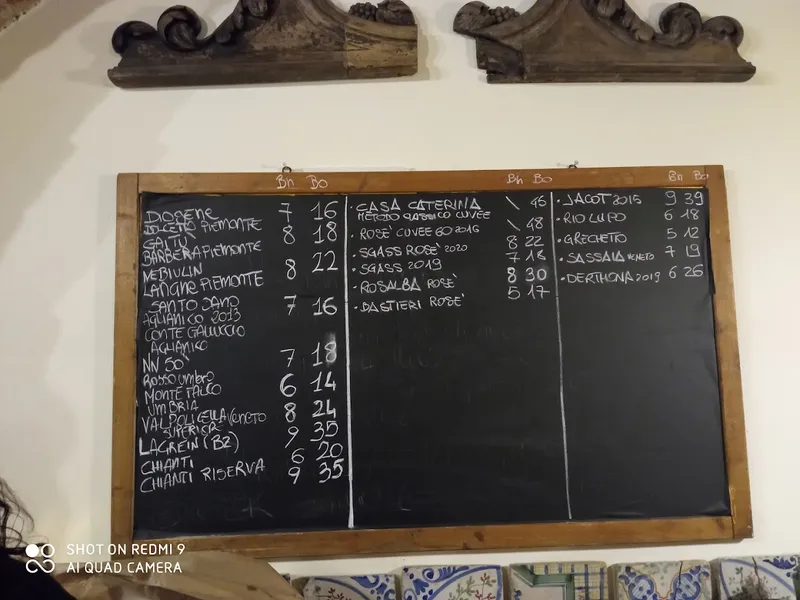 Bn Bo
DIOGENE 7 16
DOLCETTO PIEMONTE
GAITU 8 18
BARBERA PIEMONTE
NEBIULIN 8 22
LANGHE PIEMONTE
SANTO DANO 7 16
AGLIANICO 2013
CONTE GALLUCCIO
AGLIANICO
NN 50 7 18
ROSSO UMBRO 6 14
MONTEFALCO
UMBRIA
VALPOLICELLA VENETO 8 24
SUPERIORE
LAGREIN (BZ) 9 35
CHIANTI 6 20
CHIANTI RISERVA 9 35
Bn Bo
• CASA CATERINA \ 46
METODO CLASSICO CUVÉE
• ROSE' CUVEE 60 2016 \ 48
• SGASS ROSE' 2020 8 22
• SGASS 2019 7 18
• ROSALBA ROSE' 8 30
• BASTIERI ROSE' 5 17
Bn Bo
• JACOT 2015 9 39
• RIO LUPO 6 18
• GRECHETTO 5 12
• SASSAIA VENETO 7 19
• DERTHONA 2019 6 26
SHOT ON REDMI 9
AI QUAD CAMERA